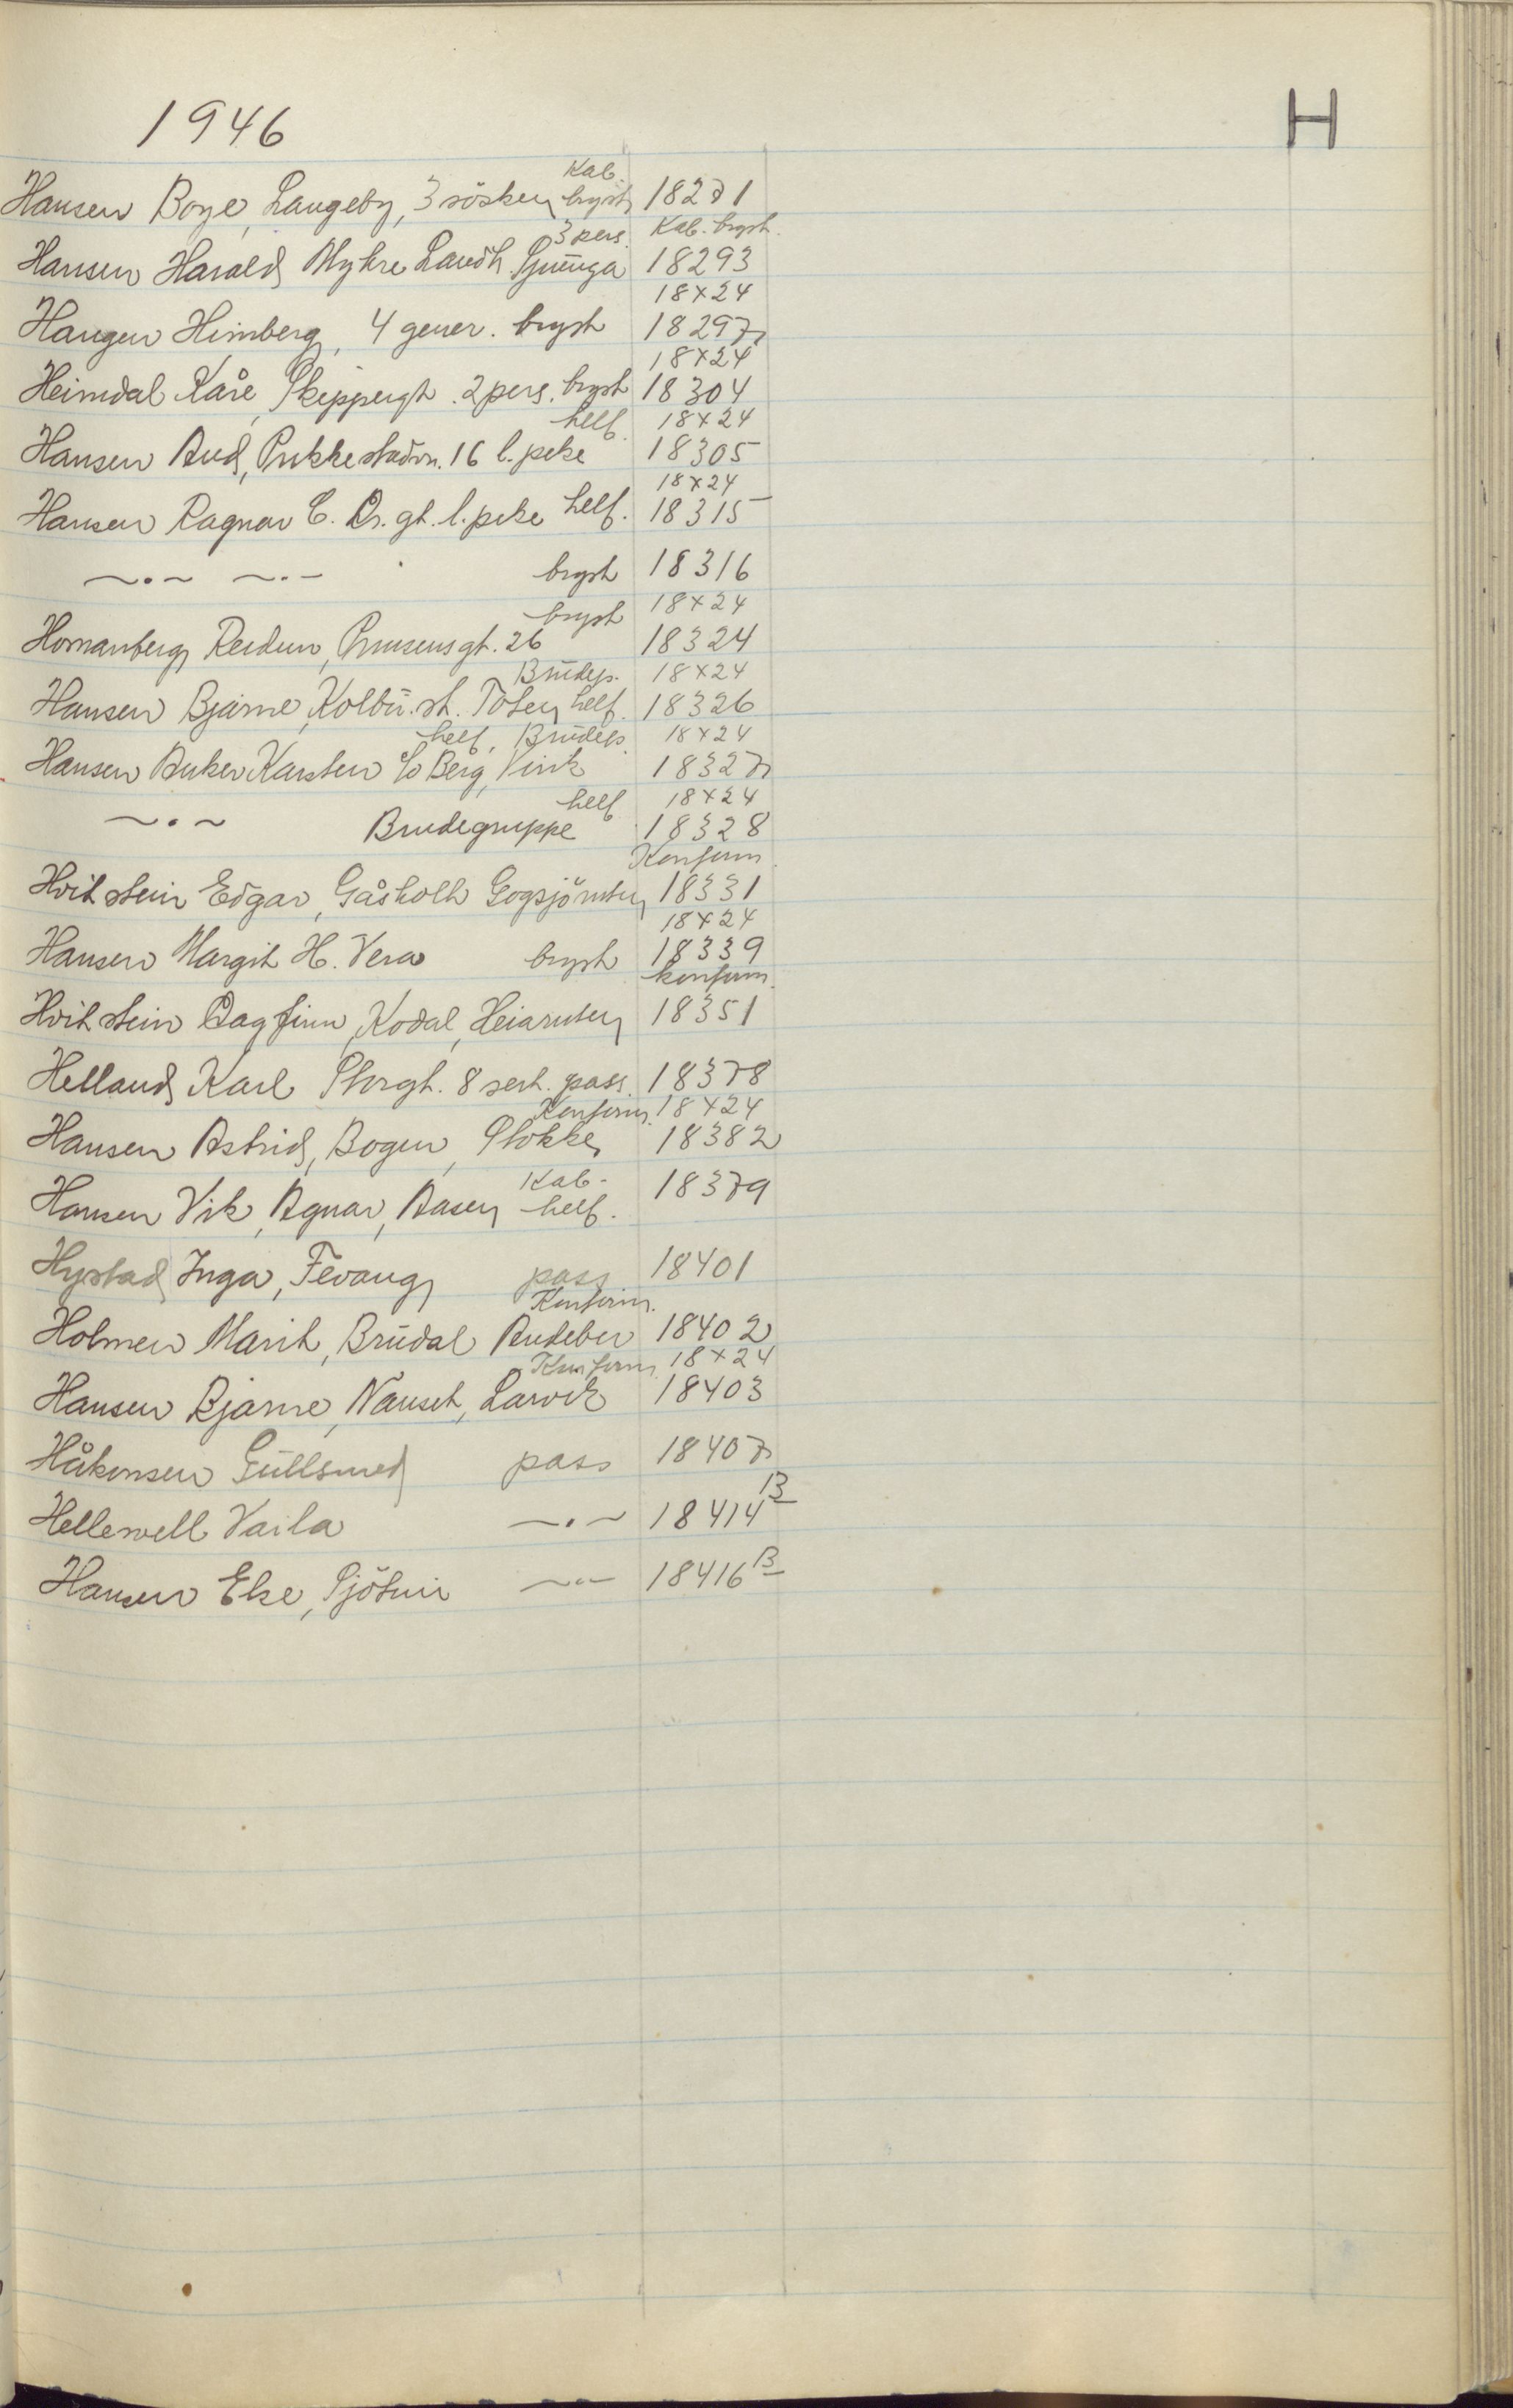 1946 H
Kab.
Hansen Boye, Langeby, 3 sösken bryst 18271
3 pers. Kab. bryst.
Hansen Harald, Myhre Landh. 18293
18×24
Haugen Himberg, 4 gener. bryst 18297
18×24
Heimdal Kåre, Skippergt. 2 pers. bryst 18304
helf. 18×24
Hansen Aud, Pukkestadvn. 16 l. peke 18305
18×24
Hansen Ragnar C. Dr. gt. l. peke helf. 18315
~.~ ~.~ bryst 18316
bryst 18×24
Homanberg Reidun, Prinsensgt. 26 18324
Brudep. 18×24
Hansen Bjarne, Kolbu. st. Toten helf. 18326
helf. Brudep. 18×24
Hansen Anker Karsten c/o Berg, 18327
helf 18×24
~.~ Brudegruppe 18328
Konfirm.
Hvitstein Edgar, Gåsholt 18331
18×24
Hansen Margit H. Vera bryst 18339
konfirm.
Hvitstein Dagfinn, Kodal, 18351
Helland Karl Storgt. 8 sert. pass 18378
Konfirm. 18×24
Hansen Astrid, Bogen, Stokke 18382
Kab.
Hansen Vik, Agnar, Aasen helf. 18379
Hystad Inga, Fevang pass 18401
Konfirm.
Holmen Marit, Brudal Andebu 18402
Konfirm 18×24
Hansen Bjarne, Nanset, Larvik 18403
Håkonsen Gullsmed pass 18407
Hellewell Vaila ~.~ 18414 B
Hansen Else, ~.~ 18416 B